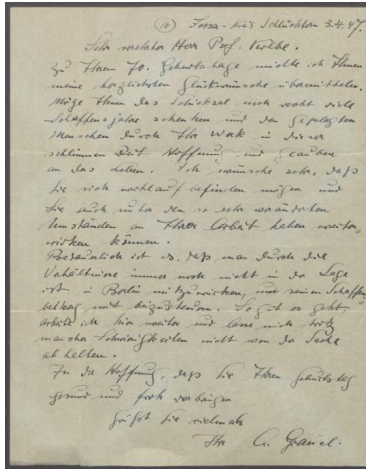 (16) Forsa - 3.4.47.
Sehr verehrter Herr Prof. Kolbe.
Zu Ihrem 70. Geburtstage möchte ich Ihnen
meine herzlichsten Glückwünsche übermitteln.
Möge Ihnen das Schicksal noch recht viele
Schaffensjahre schenken und den geplagten
Menschen durch Ihr Werk in dieser
schlimmen Zeit Hoffnung und Glauben
an das Leben. Ich wünsche sehr, daß
Sie sich wohlauf befinden mögen und
Sie auch unter den so veränderten
Umständen an Ihrer Arbeit haben weiter-
wirken können.
Bedauerlich ist es, daß man durch die
Verhältnisse immer noch nicht in der Lage
ist in Berlin mitzuwirken, und seinen Schaffens-
beitrag mit beizusteuern. So gut es geht
arbeite ich hier weiter und lasse mich trotz
mancher Schwierigkeiten nicht von der Sache
abhalten.
In der Hoffnung, daß Sie Ihren Geburtstag
gesund und froh verbringen
grüßt Sie vielmals
Ihr